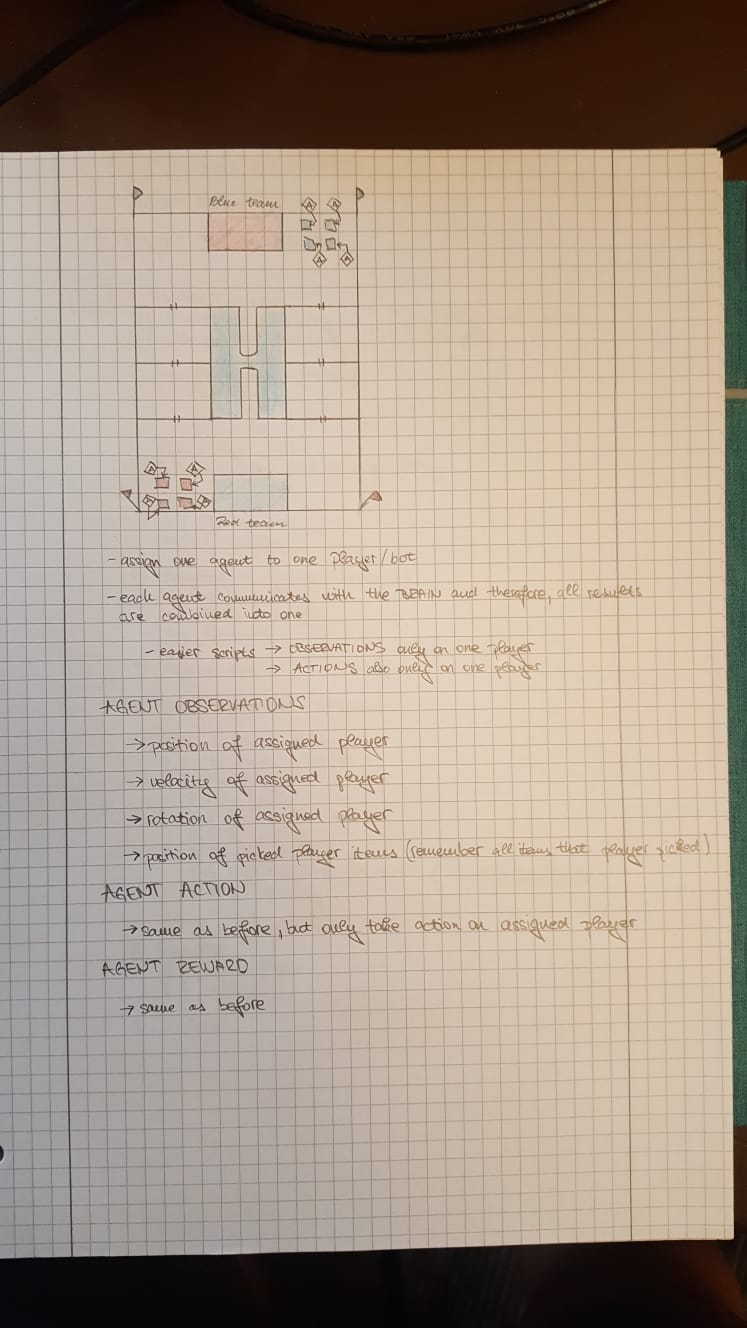 Blue team
A A
A A
A A
A A
Red team
- assign one agent to one player/bot
- each agent communicates with the BRAIN and therefore, all results
are combined into one
- easier scripts → OBSERVATIONS only on one player
→ ACTIONS also only on one player
AGENT OBSERVATIONS
→ position of assigned player
→ velocity of assigned player
→ rotation of assigned player
→ position of picked player items (remember all items that player picked)
AGENT ACTION
→ same as before, but only take action on assigned player
AGENT REWARD
→ same as before